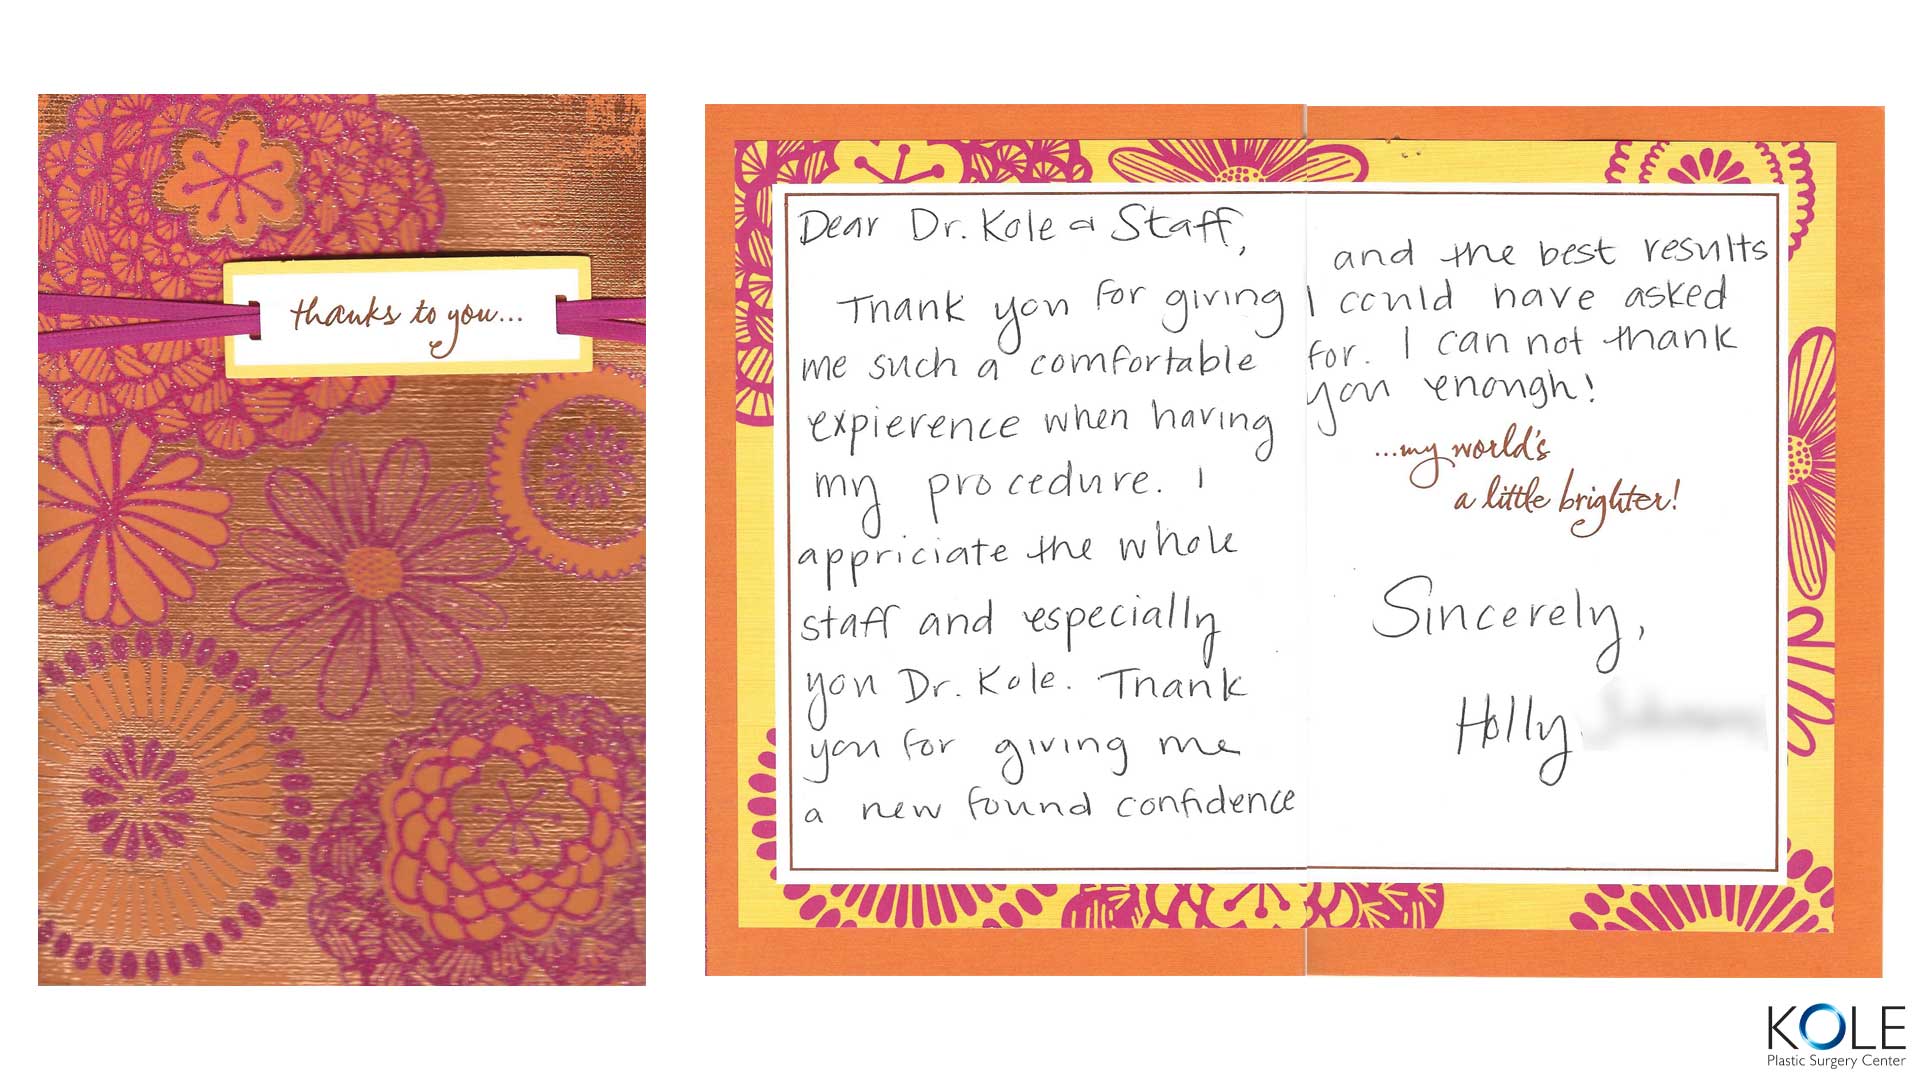 thanks to you...
Dear Dr. Kole & Staff,
Thank you for giving
me such a comfortable
expierence when having
my procedure. I
appriciate the whole
staff and especially
you Dr. Kole. Thank
you for giving me
a new found confidence
and the best results
I could have asked
for. I can not thank
you enough!
...my world's
a little brighter!
Sincerely,
Holly
KOLE
Plastic Surgery Center